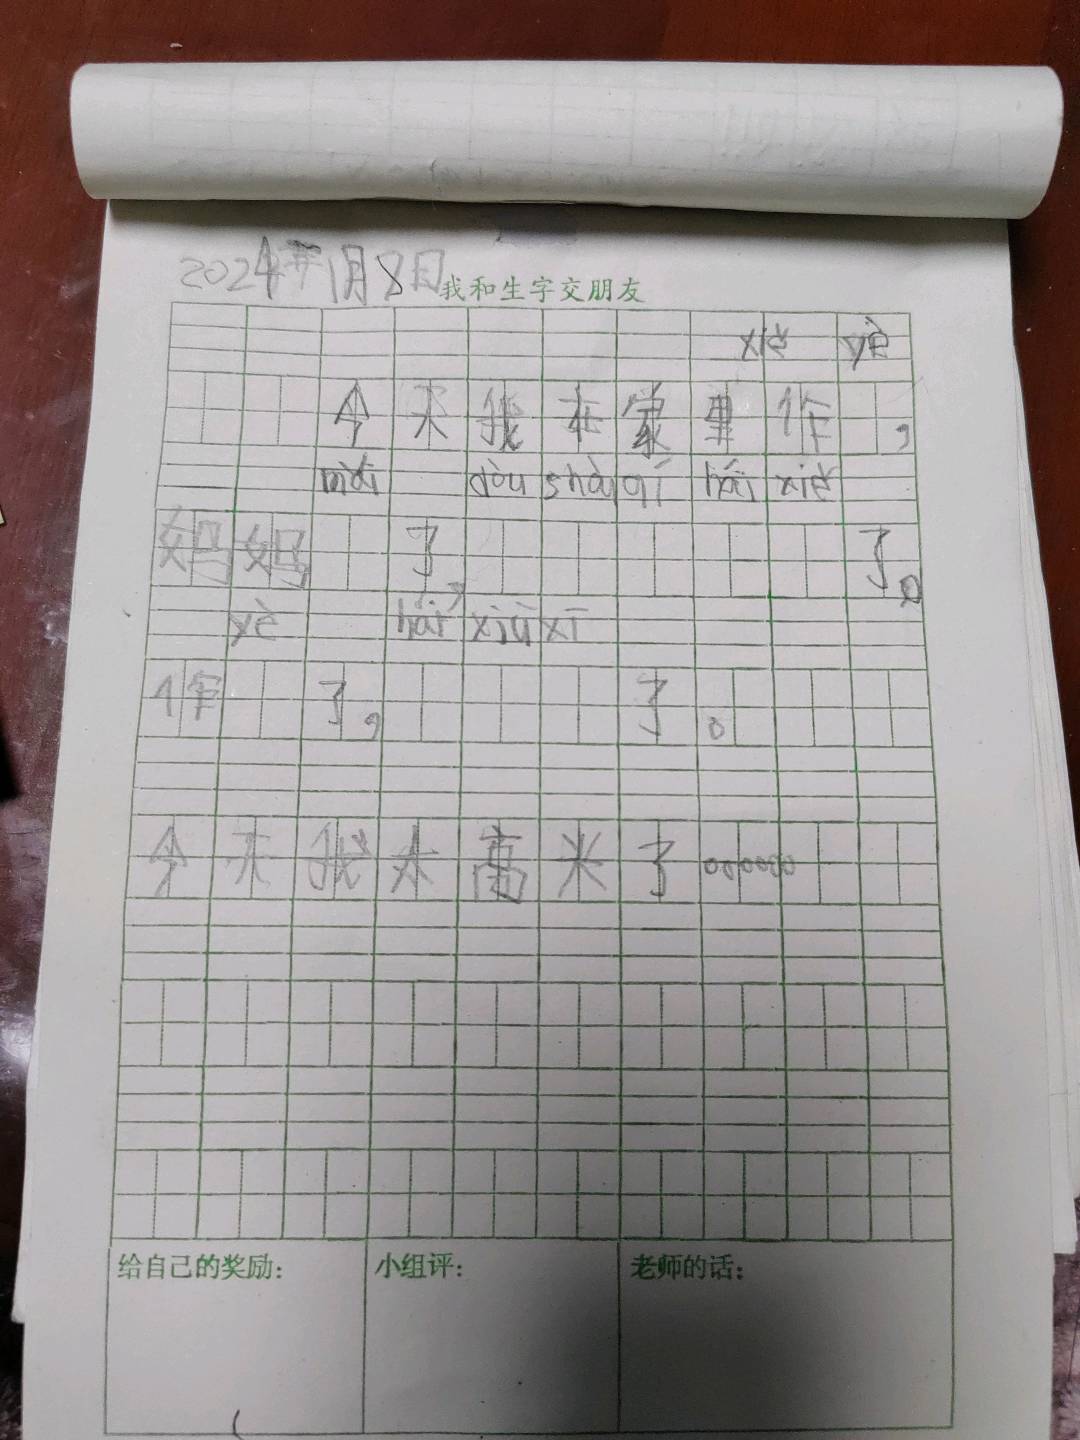 2024年1月8日我和生字交朋友
xiě yè
今天我在家里作，
mǎi dòu shà qí hái xiě
妈妈 了， 了。
yè hái xiū xī
作 了， 了。
今天我太高兴了
给自己的奖励： 小组评： 老师的话：